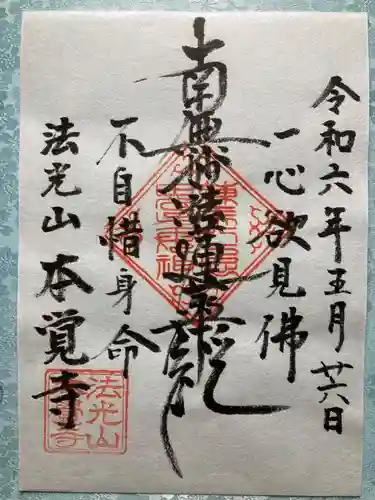 令和六年五月廿六日
一心欲見佛
南無妙法蓮華経
不自惜身命
法光山本覚寺
法光山
本覚寺